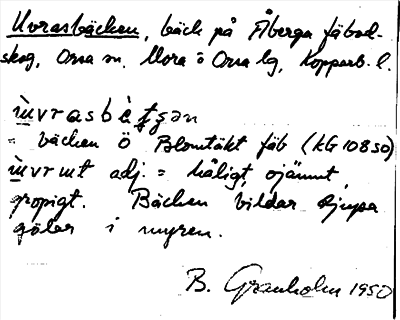 Uvrasbäcken, bäck på Åberga fäbod-
skog, Orsa sn, Mora o Orsa tg, Kopparb. l.
ùvrasbèƫʂən
= bäcken Ö Blomtäkt fäb (KG 10850)
ùvrut adj. = håligt, ojämnt,
gropigt. Bäcken bildar djupa
gölar i myren.
B. Granholm 1950